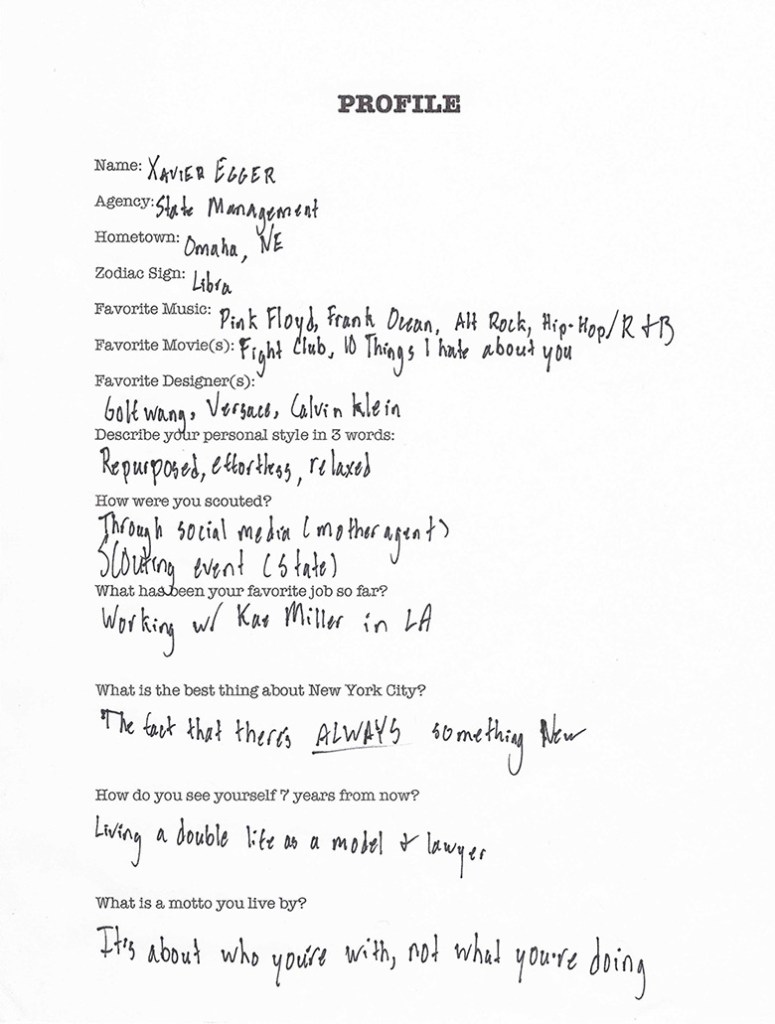 PROFILE
Name: XAVIER EGGER
Agency: State Management
Hometown: Omaha, NE
Zodiac Sign: Libra
Favorite Music: Pink Floyd, Frank Ocean, Alt Rock, Hip-Hop/R+B
Favorite Movie(s): Fight Club, 10 Things I hate about you
Favorite Designer(s):
Golf wang, Versace, Calvin Klein
Describe your personal style in 3 words:
Repurposed, effortless, relaxed
How were you scouted?
Through social media (mother agent)
Scouting event (State)
What has been your favorite job so far?
Working w/ Kae Miller in LA
What is the best thing about New York City?
The fact that there's ALWAYS something New
How do you see yourself 7 years from now?
Living a double life as a model + lawyer
What is a motto you live by?
It's about who you're with, not what you're doing